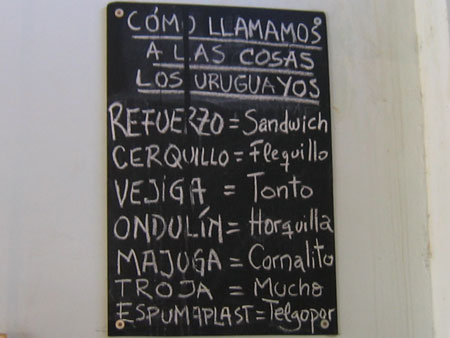 CÓMO LLAMAMOS
A LAS COSAS
LOS URUGUAYOS
REFUERZO = Sandwich
CERQUILLO = Flequillo
VEJIGA = Tonto
ONDULÍN = Horquilla
MAJUGA = Cornalito
TROJA = Mucho
ESPUMAPLAST = Telgopor